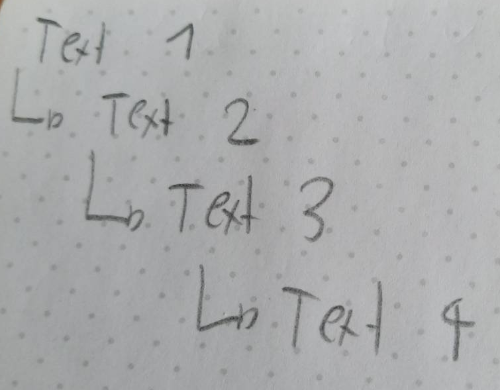 Text 1
↳ Text 2
↳ Text 3
↳ Text 4